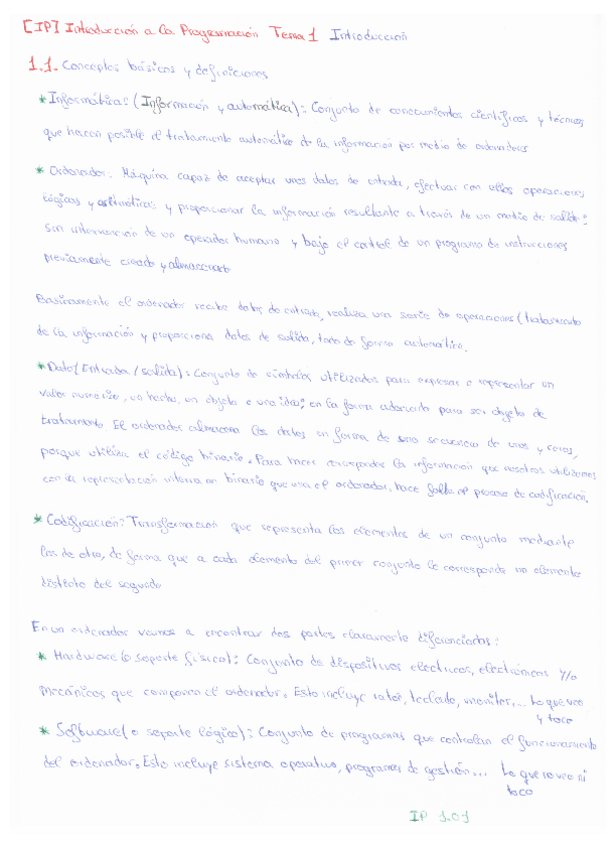 [IP] Introducción a la Programación Tema 1 Introducción
1.1. Conceptos básicos y definiciones
* Informática: (Información y automática): Conjunto de conocimientos científicos y técnicos
que hacen posible el tratamiento automático de la información por medio de ordenadores
* Ordenador: Máquina capaz de aceptar unos datos de entrada, efectuar con ellos operaciones
lógicas y aritméticas y proporcionar la información resultante a través de un medio de salida:
sin intervención de un operador humano y bajo el control de un programa de instrucciones
previamente creado y almacenado
Basicamente el ordenador recibe datos de entrada, realiza una serie de operaciones (tratamiento
de la información y proporciona datos de salida, todo de forma automática.
* Dato (Entrada / salida): Conjunto de símbolos utilizados para expresar o representar un
valor numérico, un hecho, un objeto o una idea; en la forma adecuada para ser objeto de
tratamiento. El ordenador almacena los datos en forma de una secuencia de unos y ceros,
porque utiliza el código binario. Para hacer corresponder la información que nosotros utilizamos
con la representación interna en binario que usa el ordenador, hace falta el proceso de codificación.
* Codificación: Transformación que representa los elementos de un conjunto mediante
los de otro, de forma que a cada elemento del primer conjunto le corresponde un elemento
distinto del segundo
En un ordenador vamos a encontrar dos partes claramente diferenciadas:
* Hardware (o soporte físico): Conjunto de dispositivos electricos, electrónicos y/o
mecánicos que componen el ordenador. Esto incluye ratón, teclado, monitor,... Lo que veo
y toco
* Software (o soporte lógico): Conjunto de programas que controlan el funcionamiento
del ordenador. Esto incluye sistema operativo, programas de gestión... Lo que no veo ni
toco
IP 1.01